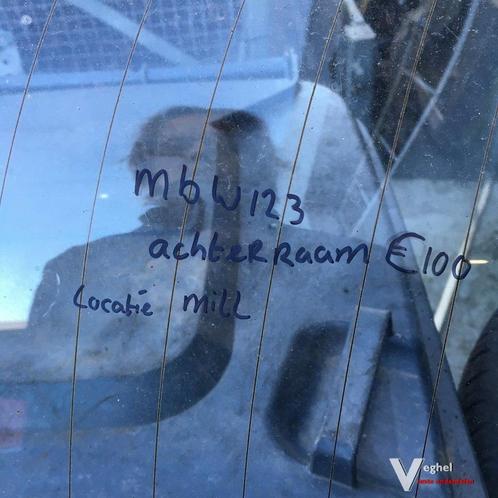 MB W123
achterraam €100
Locatie Mill
Veghel